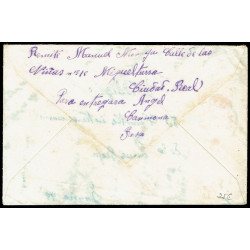 Remite Manuel Monya Calle de las
Niñas nº 10 Miguelturra
Ciudad Real
Para entregar a Angel
Carmona
Rosa